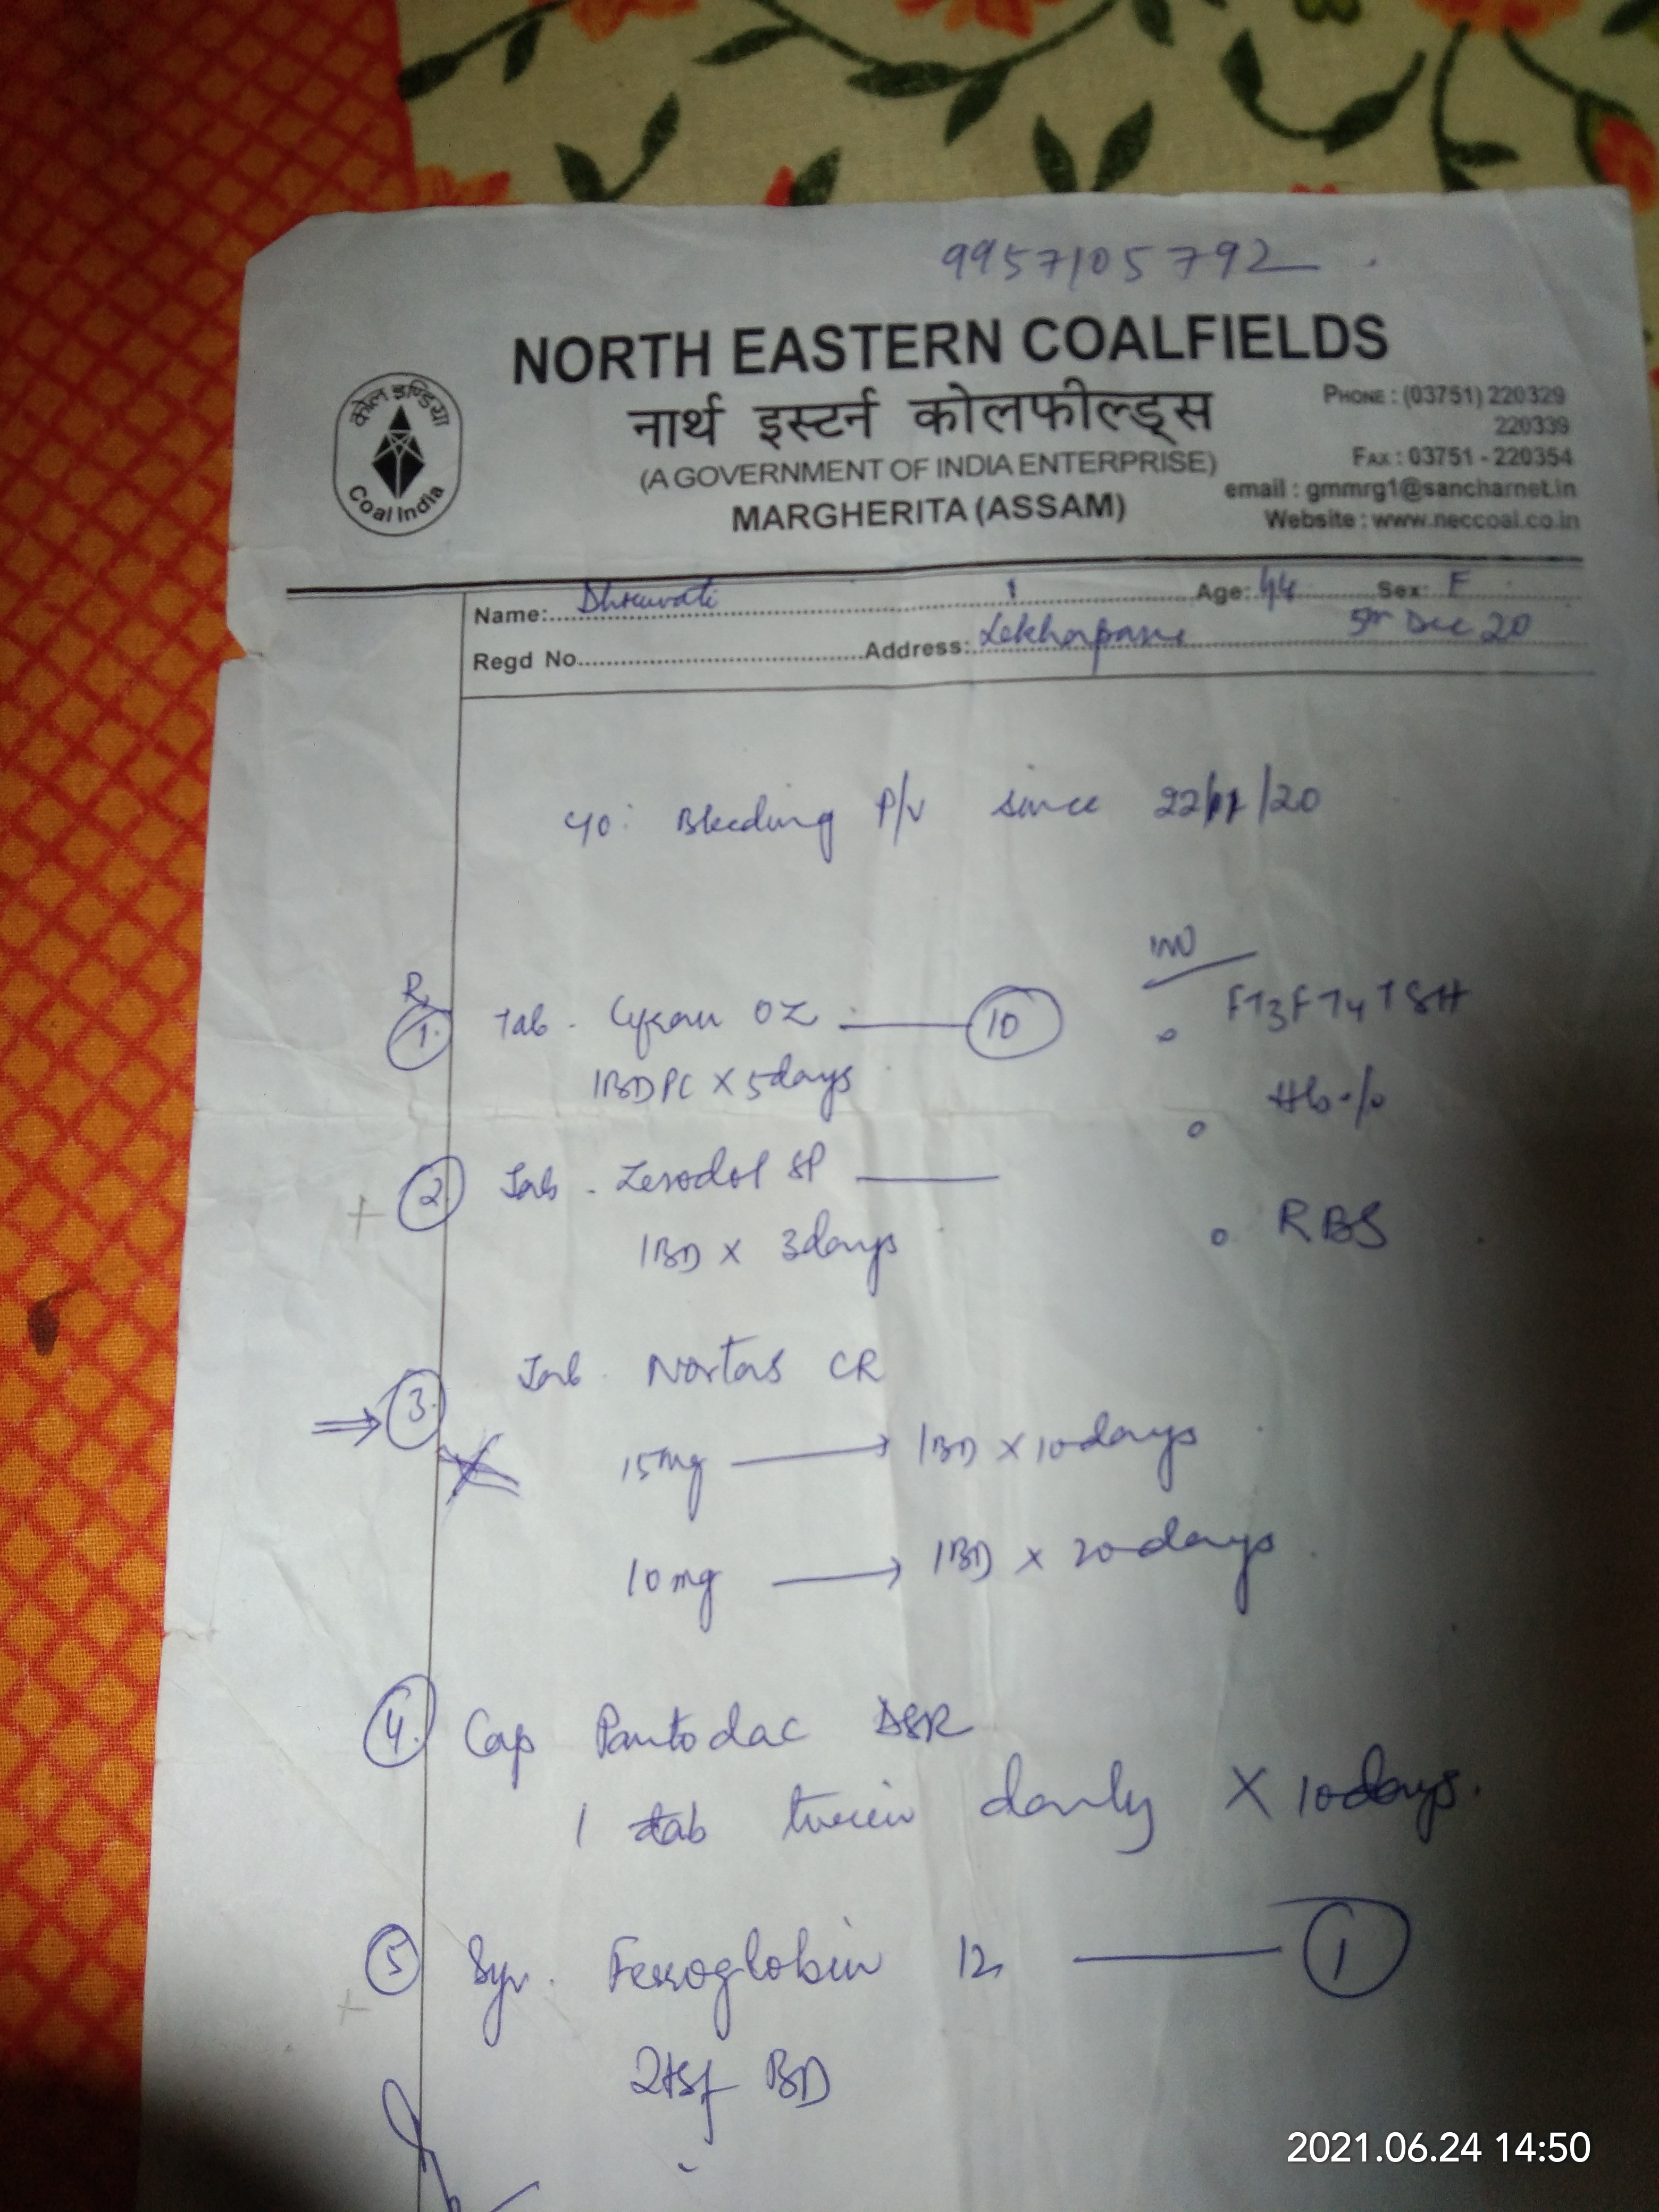 9957105792
NORTH EASTERN COALFIELDS
नार्थ इस्टर्न कोलफील्ड्स
(A GOVERNMENT OF INDIA ENTERPRISE)
MARGHERITA (ASSAM)
कोल इण्डिया
Coal India
PHONE : (03751) 220329
220339
FAX : 03751 - 220354
email : gmmrg1@sancharnet.in
Website : www.neccoal.co.in
Name: Age: 44 Sex: F
Regd No. Address: Lekhapani 5th Dec 20
c/o: Bleeding P/V since 22/11/20
Rx
INV
1. Tab. OZ 10
1BDPC X 5days
FT3FT4TSH
Hb%
2. Tab. Zerodol SP
1BD X 3days
RBS
3. Tab. Nortas CR
15mg → 1BD X 10days
10mg → 1BD X 20days
4. Cap Pantodac DSR
1 tab daily X 10days.
5 Syr. Ferroglobin 12 1
2tsf BD
2021.06.24 14:50